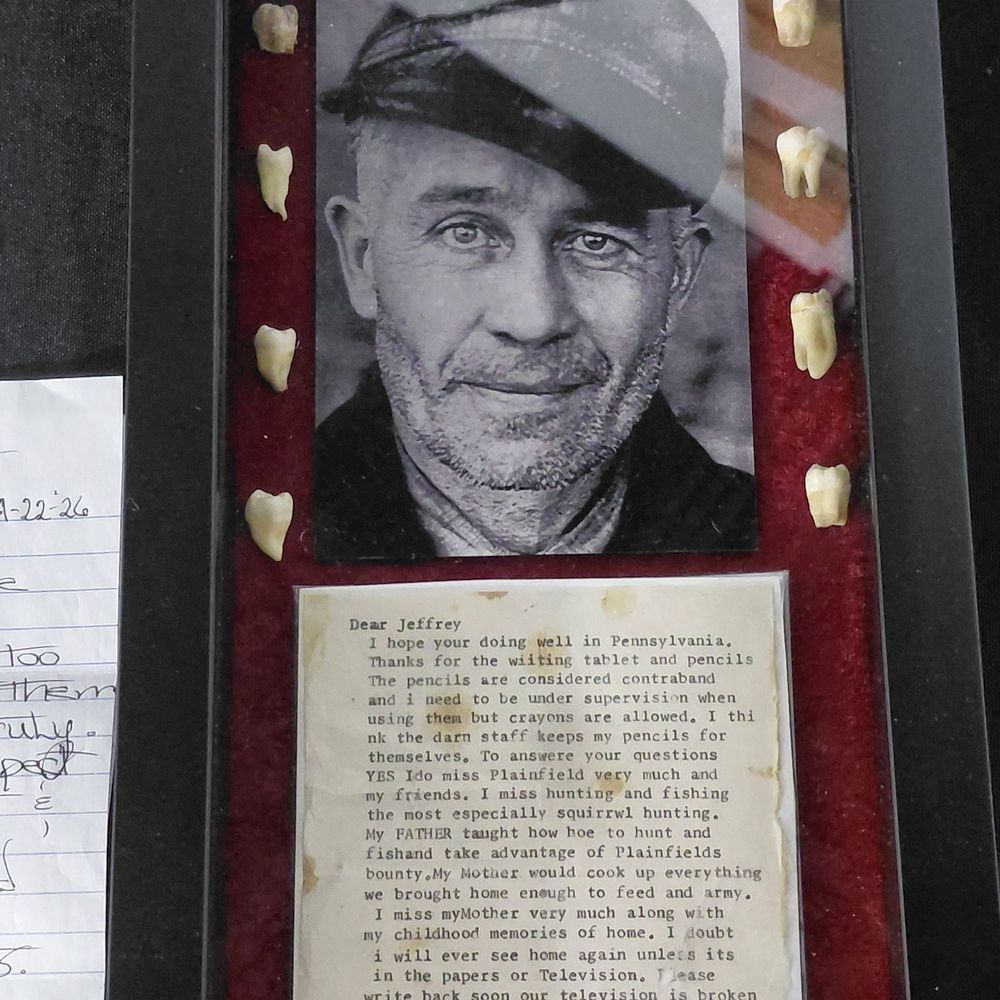 -22-26
too
them
Dear Jeffrey
I hope your doing well in Pennsylvania.
Thanks for the wiiting tablet and pencils
The pencils are considered contraband
and i need to be under supervision when
using them but crayons are allowed. I thi
nk the darn staff keeps my pencils for
themselves. To answer your questions
YES Ido miss Plainfield very much and
my friends. I miss hunting and fishing
the most especially squirrwl hunting.
My FATHER taught how hoe to hunt and
fishand take advantage of Plainfields
bounty.My Mother would cook up everything
we brought home enough to feed and army.
I miss myMother very much along with
my childhood memories of home. I doubt
i will ever see home again unless its
in the papers or Television. Please
write back soon our television is broken